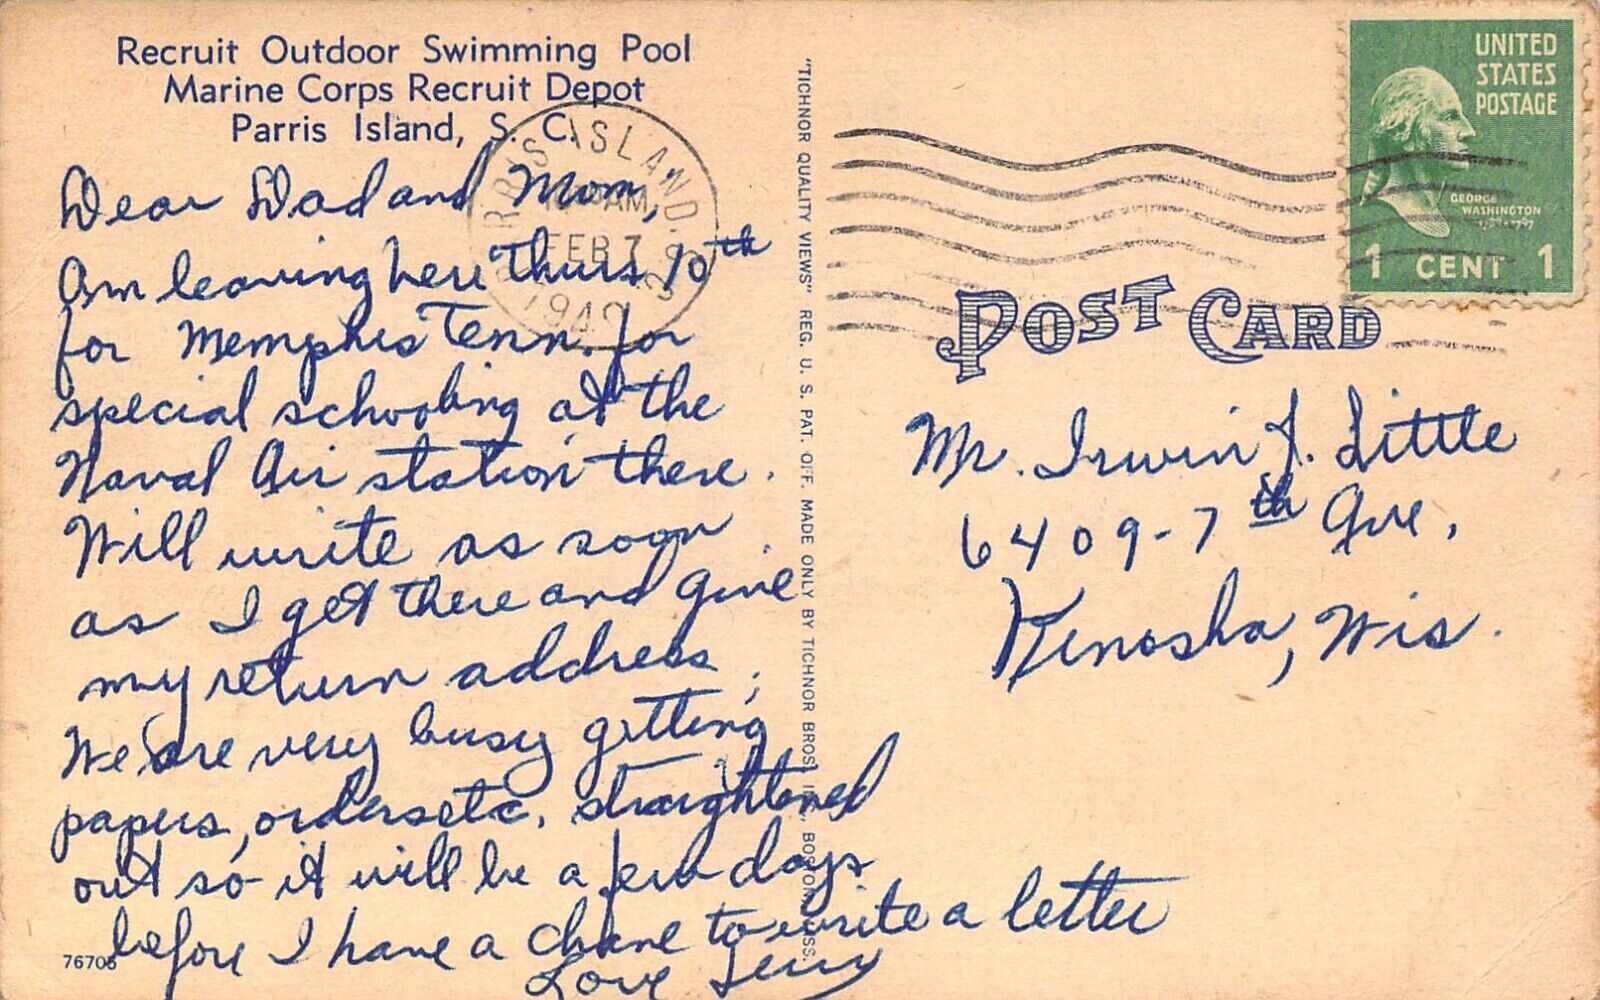 Recruit Outdoor Swimming Pool
Marine Corps Recruit Depot
Parris Island, S. C.
Dear Dad and Mom,
Am leaving here Thurs 10th
for Memphis Tenn. for
special schooling at the
Naval Air station there.
Will write as soon
as I get there and give
my return address.
We are very busy getting
papers, orders etc. straightened
out so it will be a few days
before I have a chance to write a letter
Love Jerry
76705
"TICHNOR QUALITY VIEWS" REG. U. S. PAT. OFF. MADE ONLY BY TICHNOR BROS. INC., BOSTON, MASS.
PARRIS ISLAND, S.C.
AM
FEB 7
1949
UNITED
STATES
POSTAGE
GEORGE
WASHINGTON
1789-1797
1 CENT 1
POST CARD
Mr. Irwin J. Little
6409-7th Ave,
Kenosha, Wis.